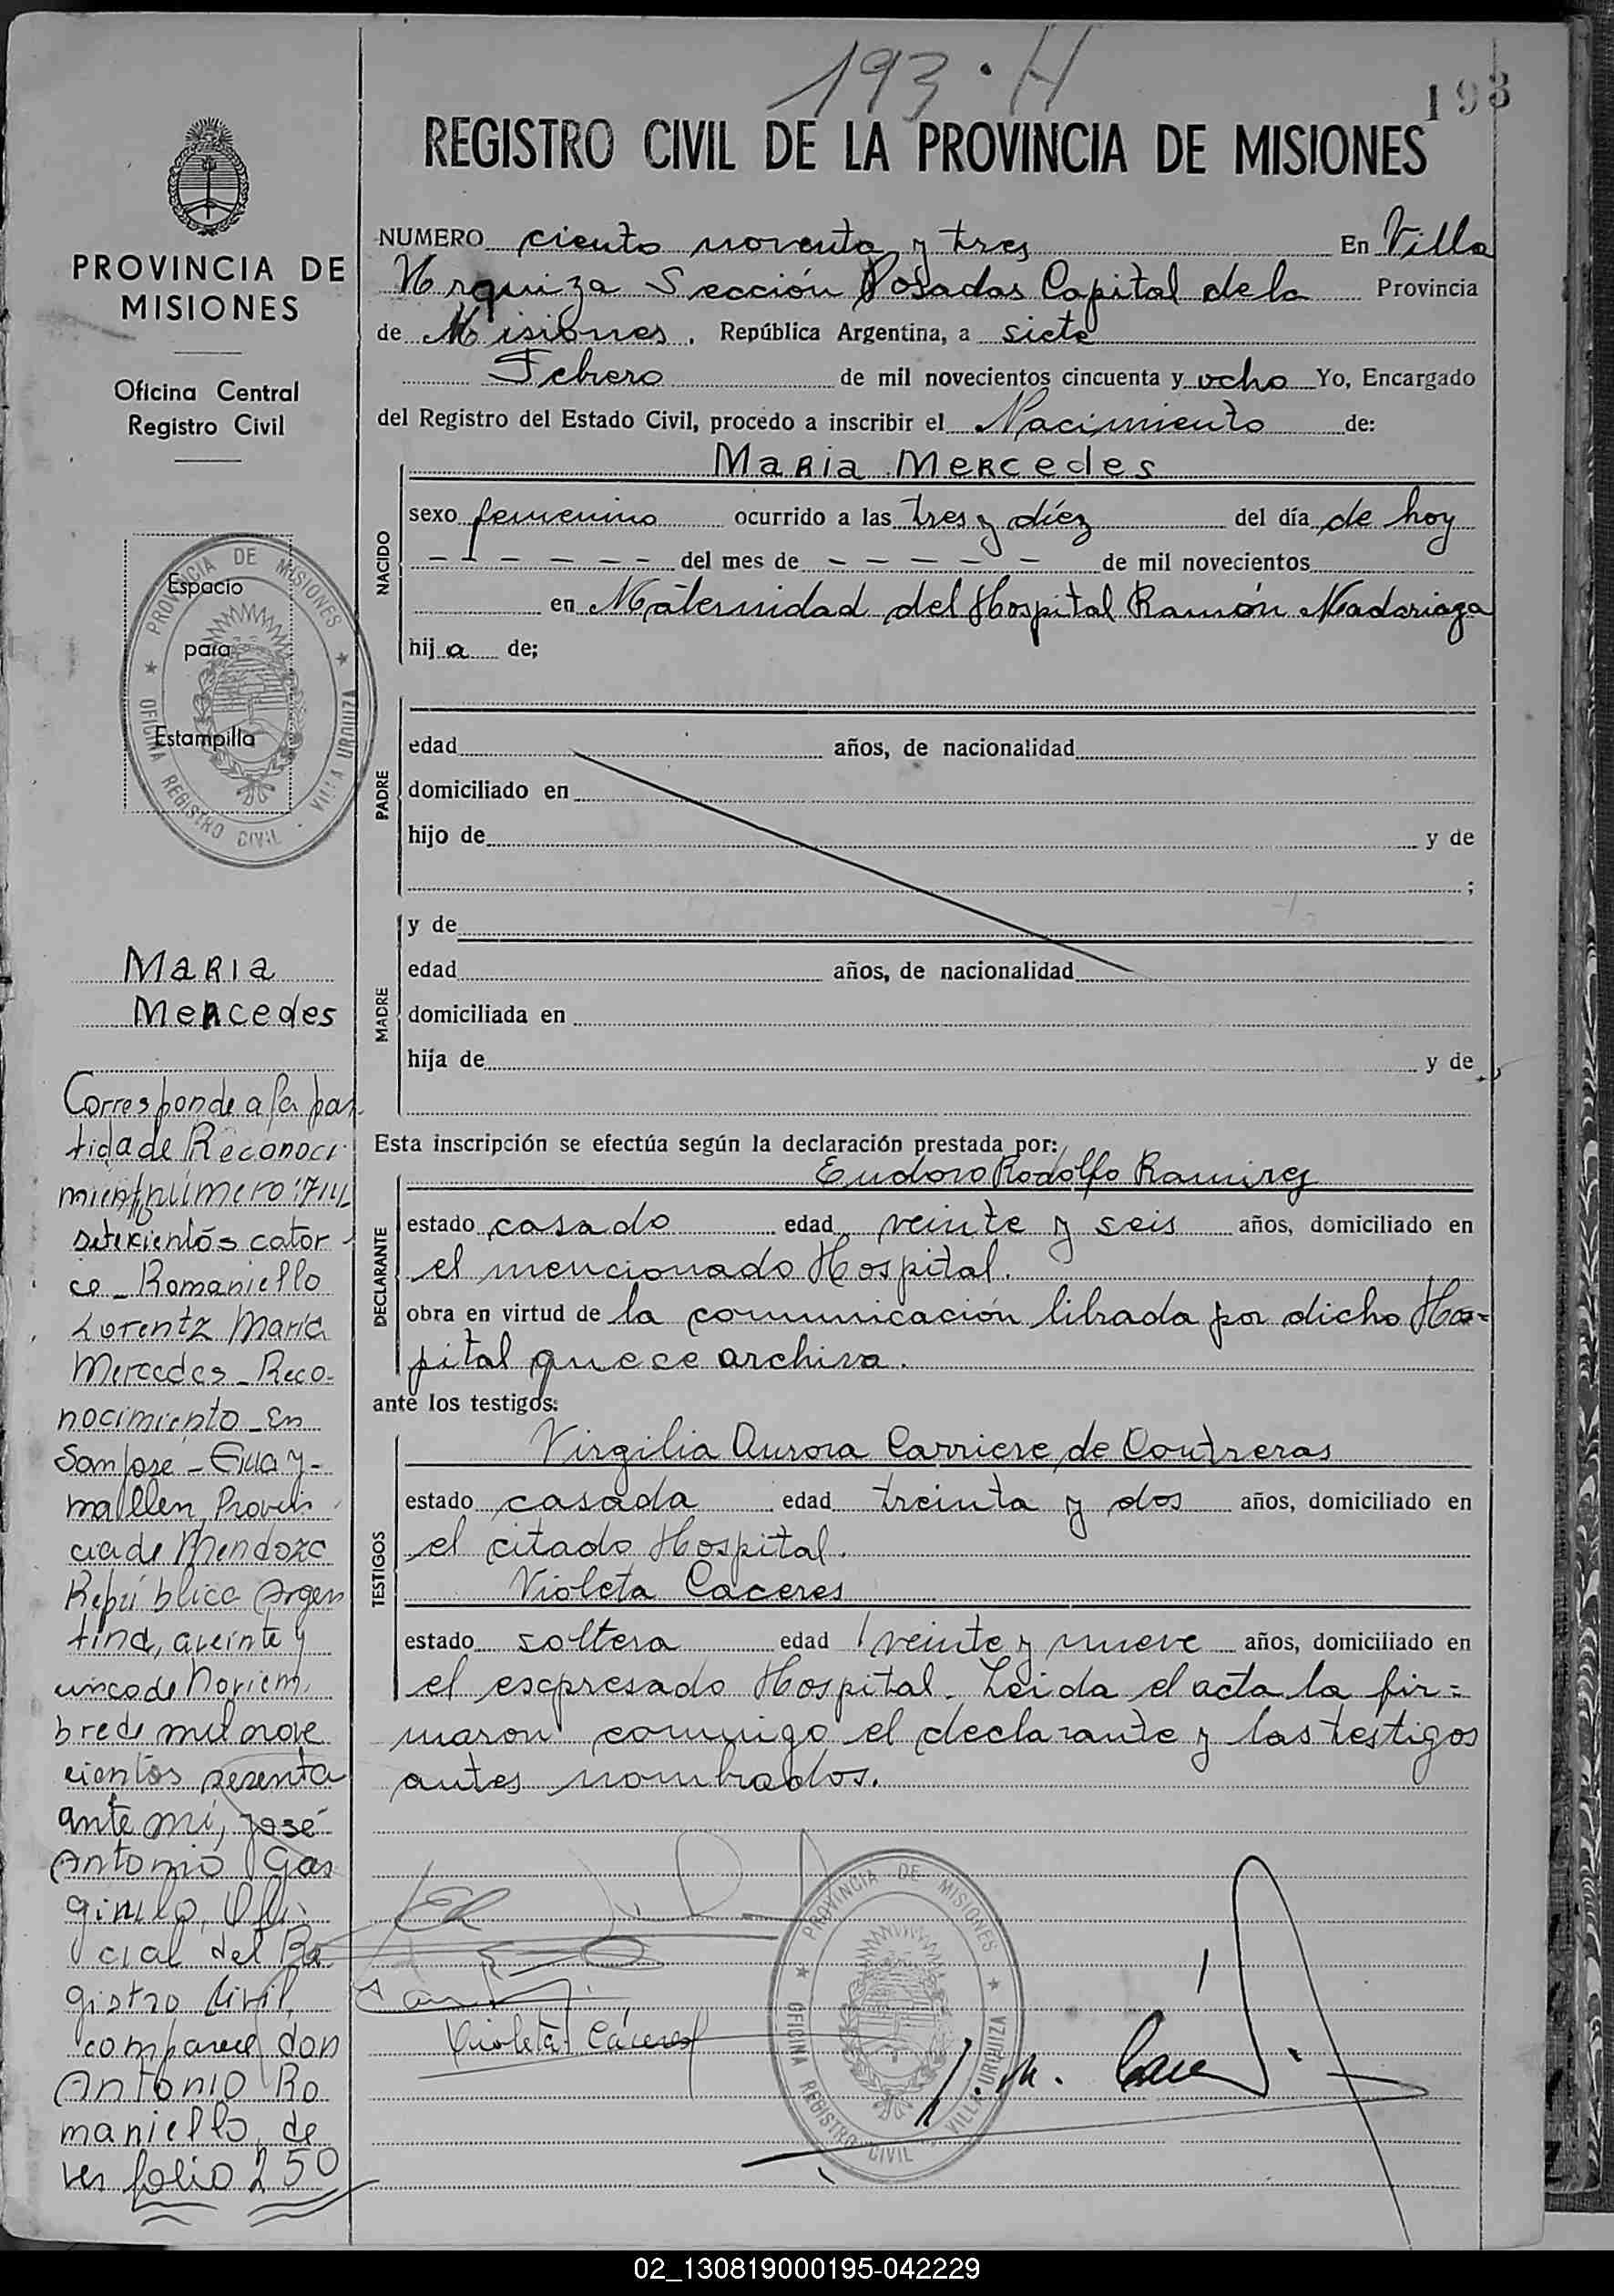 193·H
193
REGISTRO CIVIL DE LA PROVINCIA DE MISIONES
PROVINCIA DE
MISIONES
Oficina Central
Registro Civil
PROVINCIA DE MISIONES
Espacio
para
Estampilla
OFICINA REGISTRO CIVIL - VILLA URQUIZA
Maria
Mercedes
Corresponde a la par
tida de Reconoci
miento número 714
setecientos cator
ce - Romaniello
Lorentz María
Mercedes - Reco-
nocimiento - En
San José - Guay-
mallén, Provin
cia de Mendoza
República Argen
tina, a veinte y
cinco de Noviem
bre de mil nove
cientos sesenta
ante mí, José
Antonio Gas
Ofi
cial del Re
gistro Civil,
comparece don
Antonio Ro
maniello, de
ver folio 250
NUMERO ciento noventa y tres En Villa
Urquiza Sección Posadas Capital de la Provincia
de Misiones, República Argentina, a siete
Febrero de mil novecientos cincuenta y ocho Yo, Encargado
del Registro del Estado Civil, procedo a inscribir el Nacimiento de:
NACIDO
Maria Mercedes
sexo femenino ocurrido a las tres y diez del día de hoy
- - - - - - del mes de - - - - - de mil novecientos
en Maternidad del Hospital Ramón Madariaga
hij a de;
PADRE
edad años, de nacionalidad
domiciliado en
hijo de y de
;
MADRE
y de
edad años, de nacionalidad
domiciliada en
hija de y de
Esta inscripción se efectúa según la declaración prestada por:
DECLARANTE
Eudoro Rodolfo Ramirez
estado casado edad veinte y seis años, domiciliado en
el mencionado Hospital.
obra en virtud de la comunicación librada por dicho Hos=
pital que se archiva.
ante los testigos:
TESTIGOS
Virgilia Aurora Carriere de Contreras
estado casada edad treinta y dos años, domiciliado en
el citado Hospital.
Violeta Caceres
estado soltera edad veinte y nueve años, domiciliado en
el expresado Hospital. Leida el acta la fir=
maron conmigo el declarante y las testigos
antes nombrados.
PROVINCIA DE MISIONES
Violeta Cáceres
OFICINA REGISTRO CIVIL VILLA URQUIZA
02_130819000195-042229